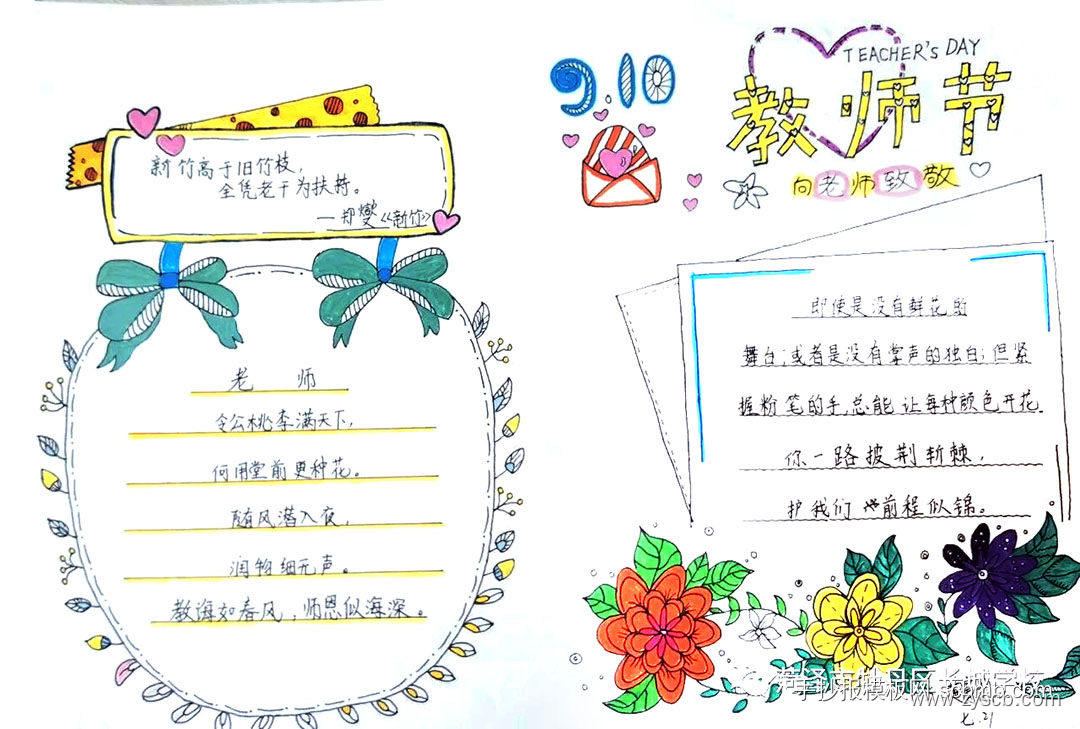 新竹高于旧竹枝,
全凭老干为扶持。
—郑燮《新竹》
老 师
令公桃李满天下,
何用堂前更种花。
随风潜入夜,
润物细无声。
教诲如春风,师恩似海深。
9.10
TEACHER's DAY
教师节
向老师致敬
即使是没有鲜花的
舞台;或者是没有掌声的独白;但紧
握粉笔的手,总能让每种颜色开花
你一路披荆斩棘,
护我们 前程似锦。
七.21